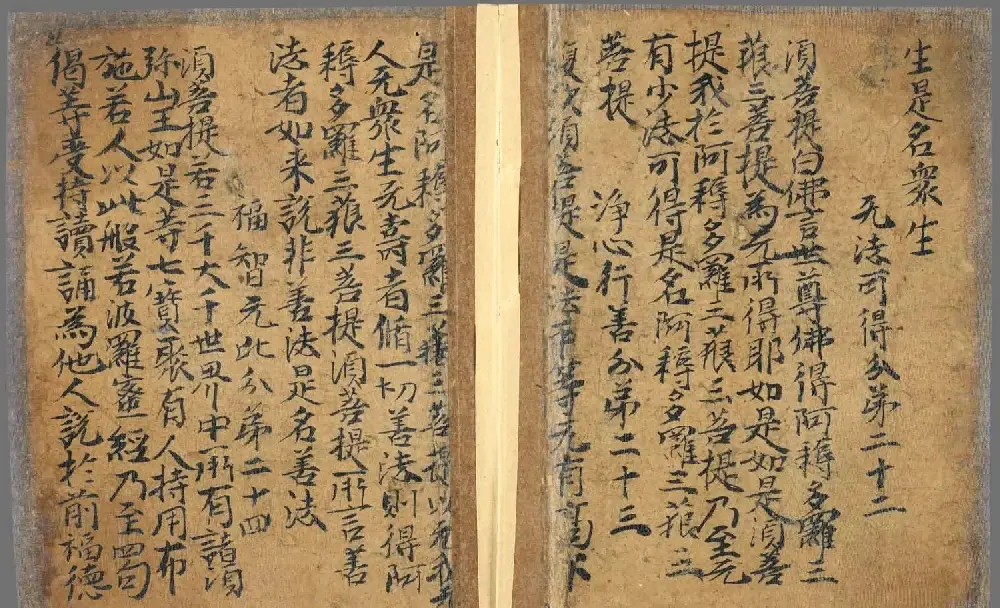 生是名衆生
无法可得分第二十二
湏菩提白佛言世尊佛得阿耨多羅三
藐三菩提為无所得耶如是如是湏菩
提我於阿耨多羅三藐三菩提乃至无
有少法可得是名阿耨多羅三藐三
菩提
淨心行善分第二十三
復次湏菩提是法平等无有高下
是名阿耨多羅三藐三菩提以无我
人无衆生无壽者脩一切善法則得阿
耨多羅三藐三菩提湏菩提所言善
法者如来說非善法是名善法
福智无比分第二十四
湏菩提若三千大千世界中所有諸湏
弥山王如是等七寶聚有人持用布
施若人以此般若波羅蜜經乃至四句
偈等受持讀誦為他人說於前福德